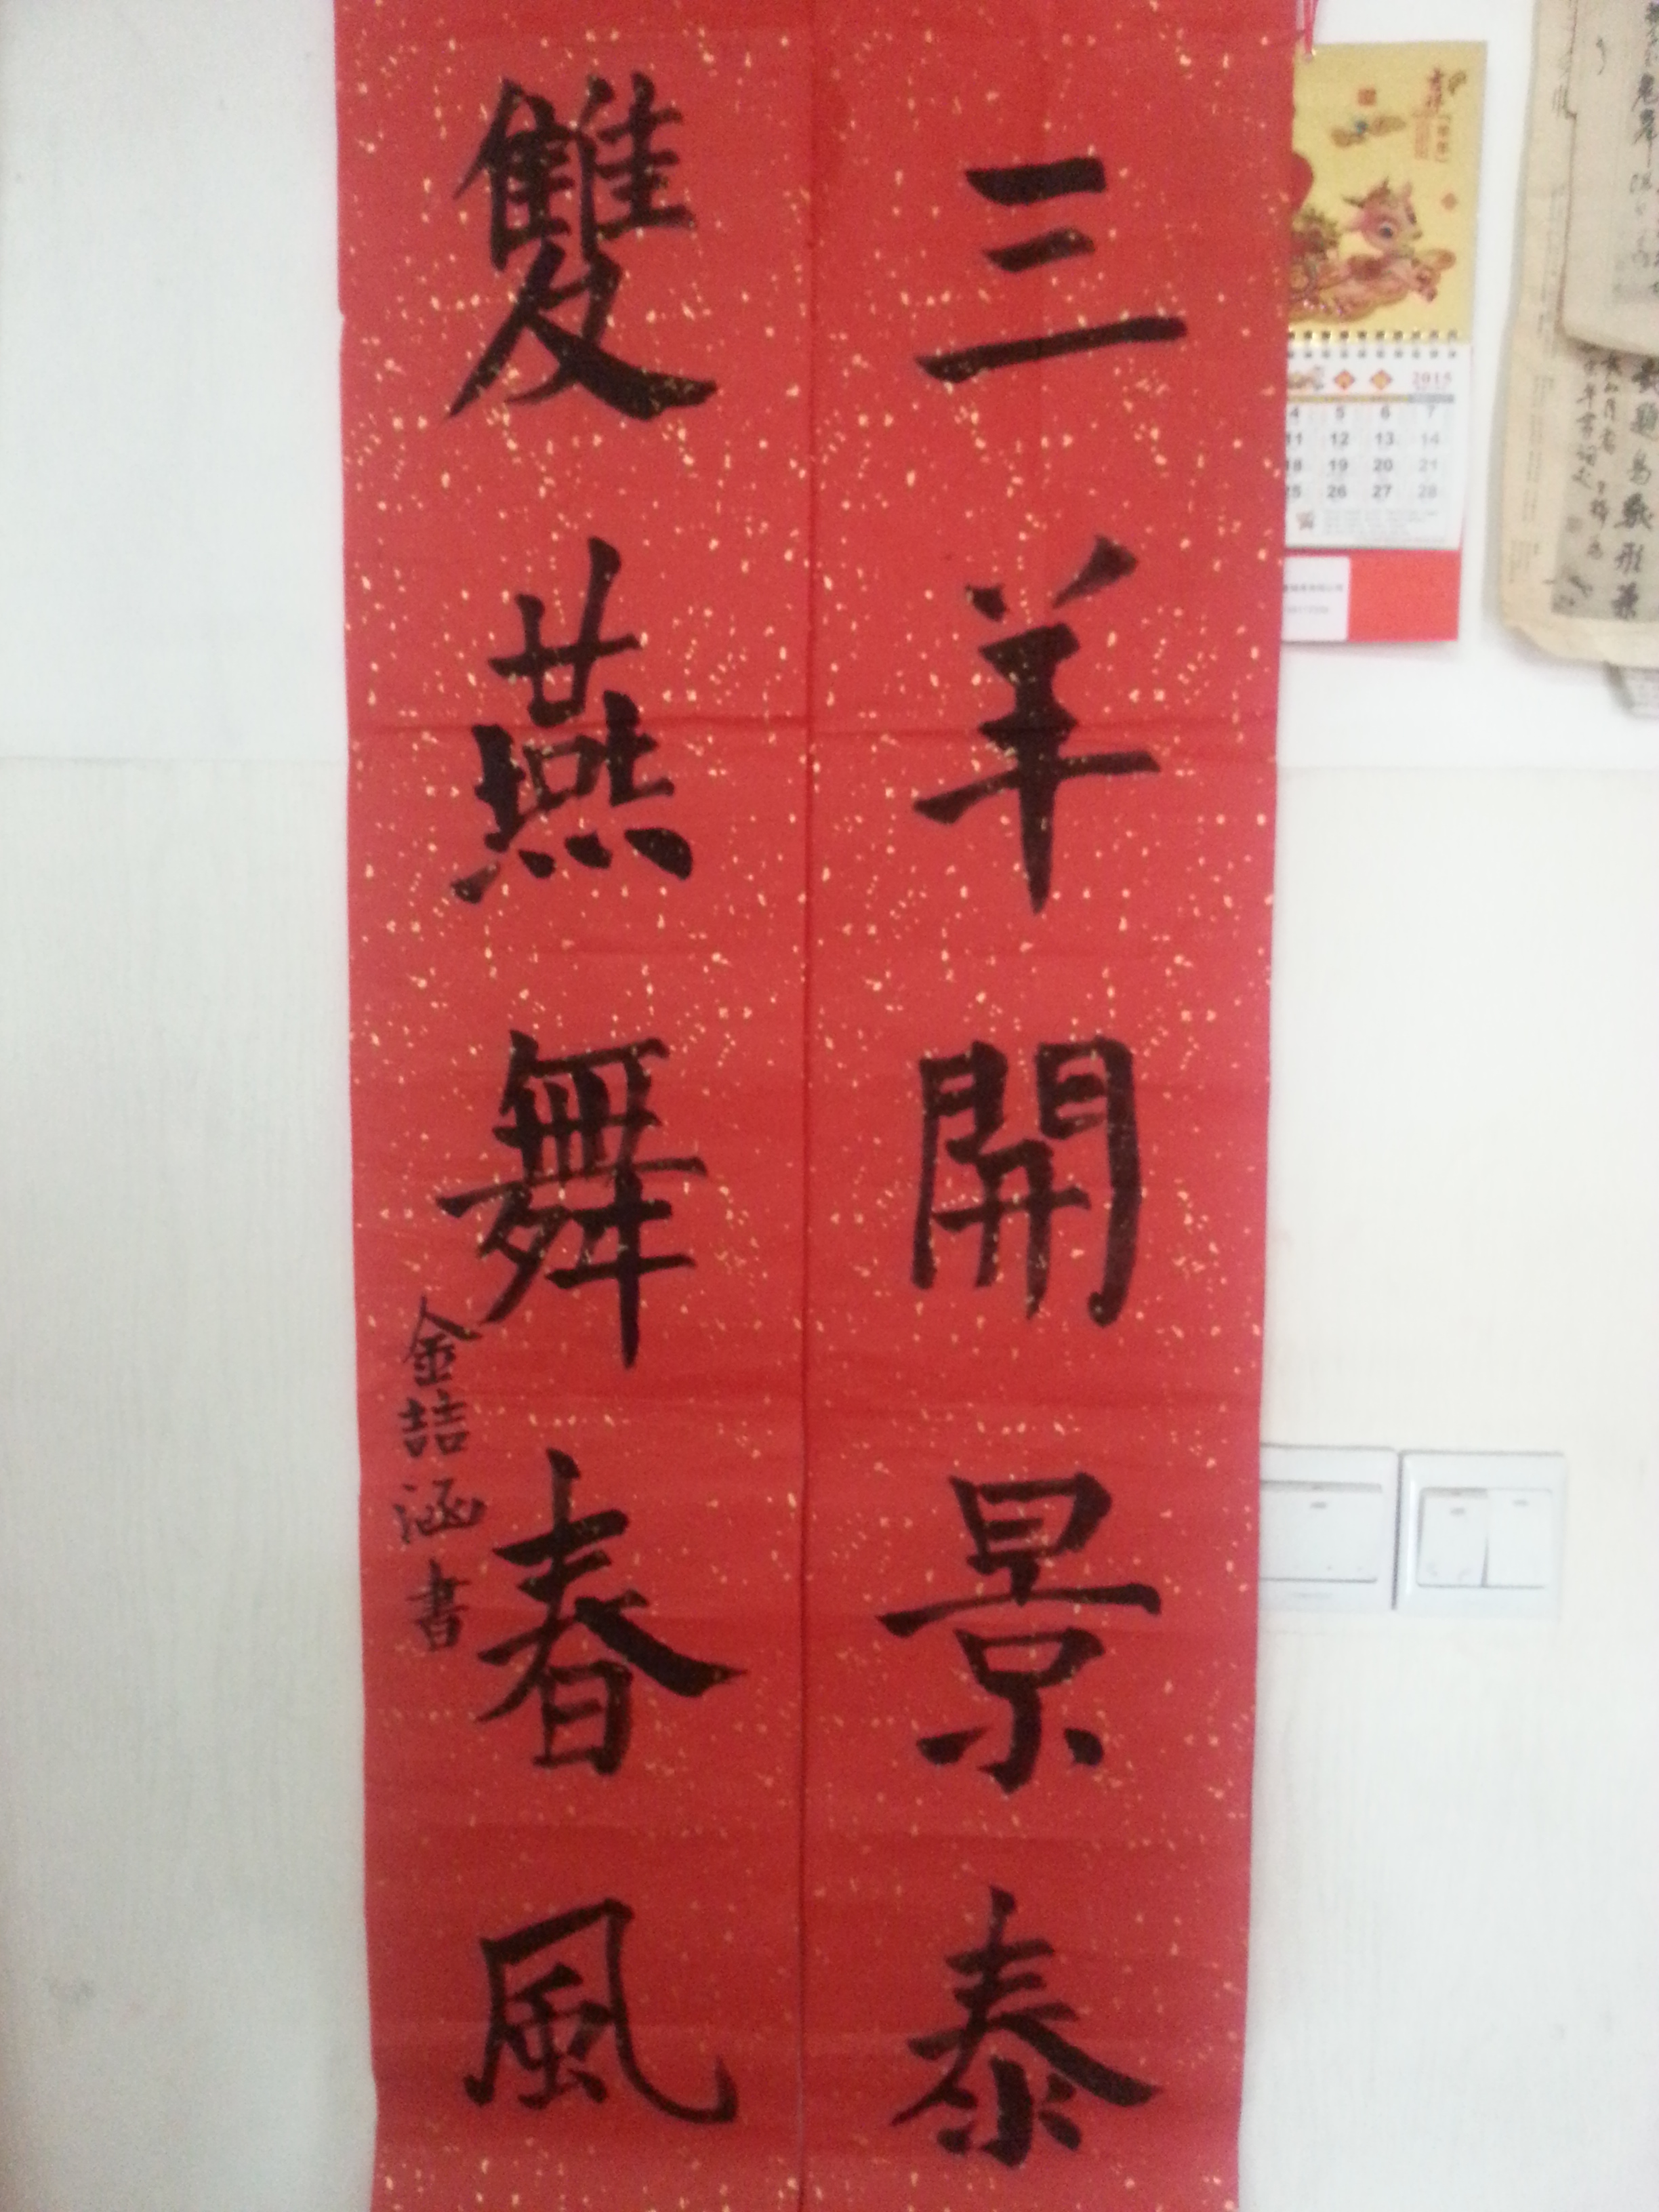 三羊開景泰
雙燕舞春風
金喆涵書
2015
4 5 6 7
11 12 13 14
18 19 20 21
25 26 27 28